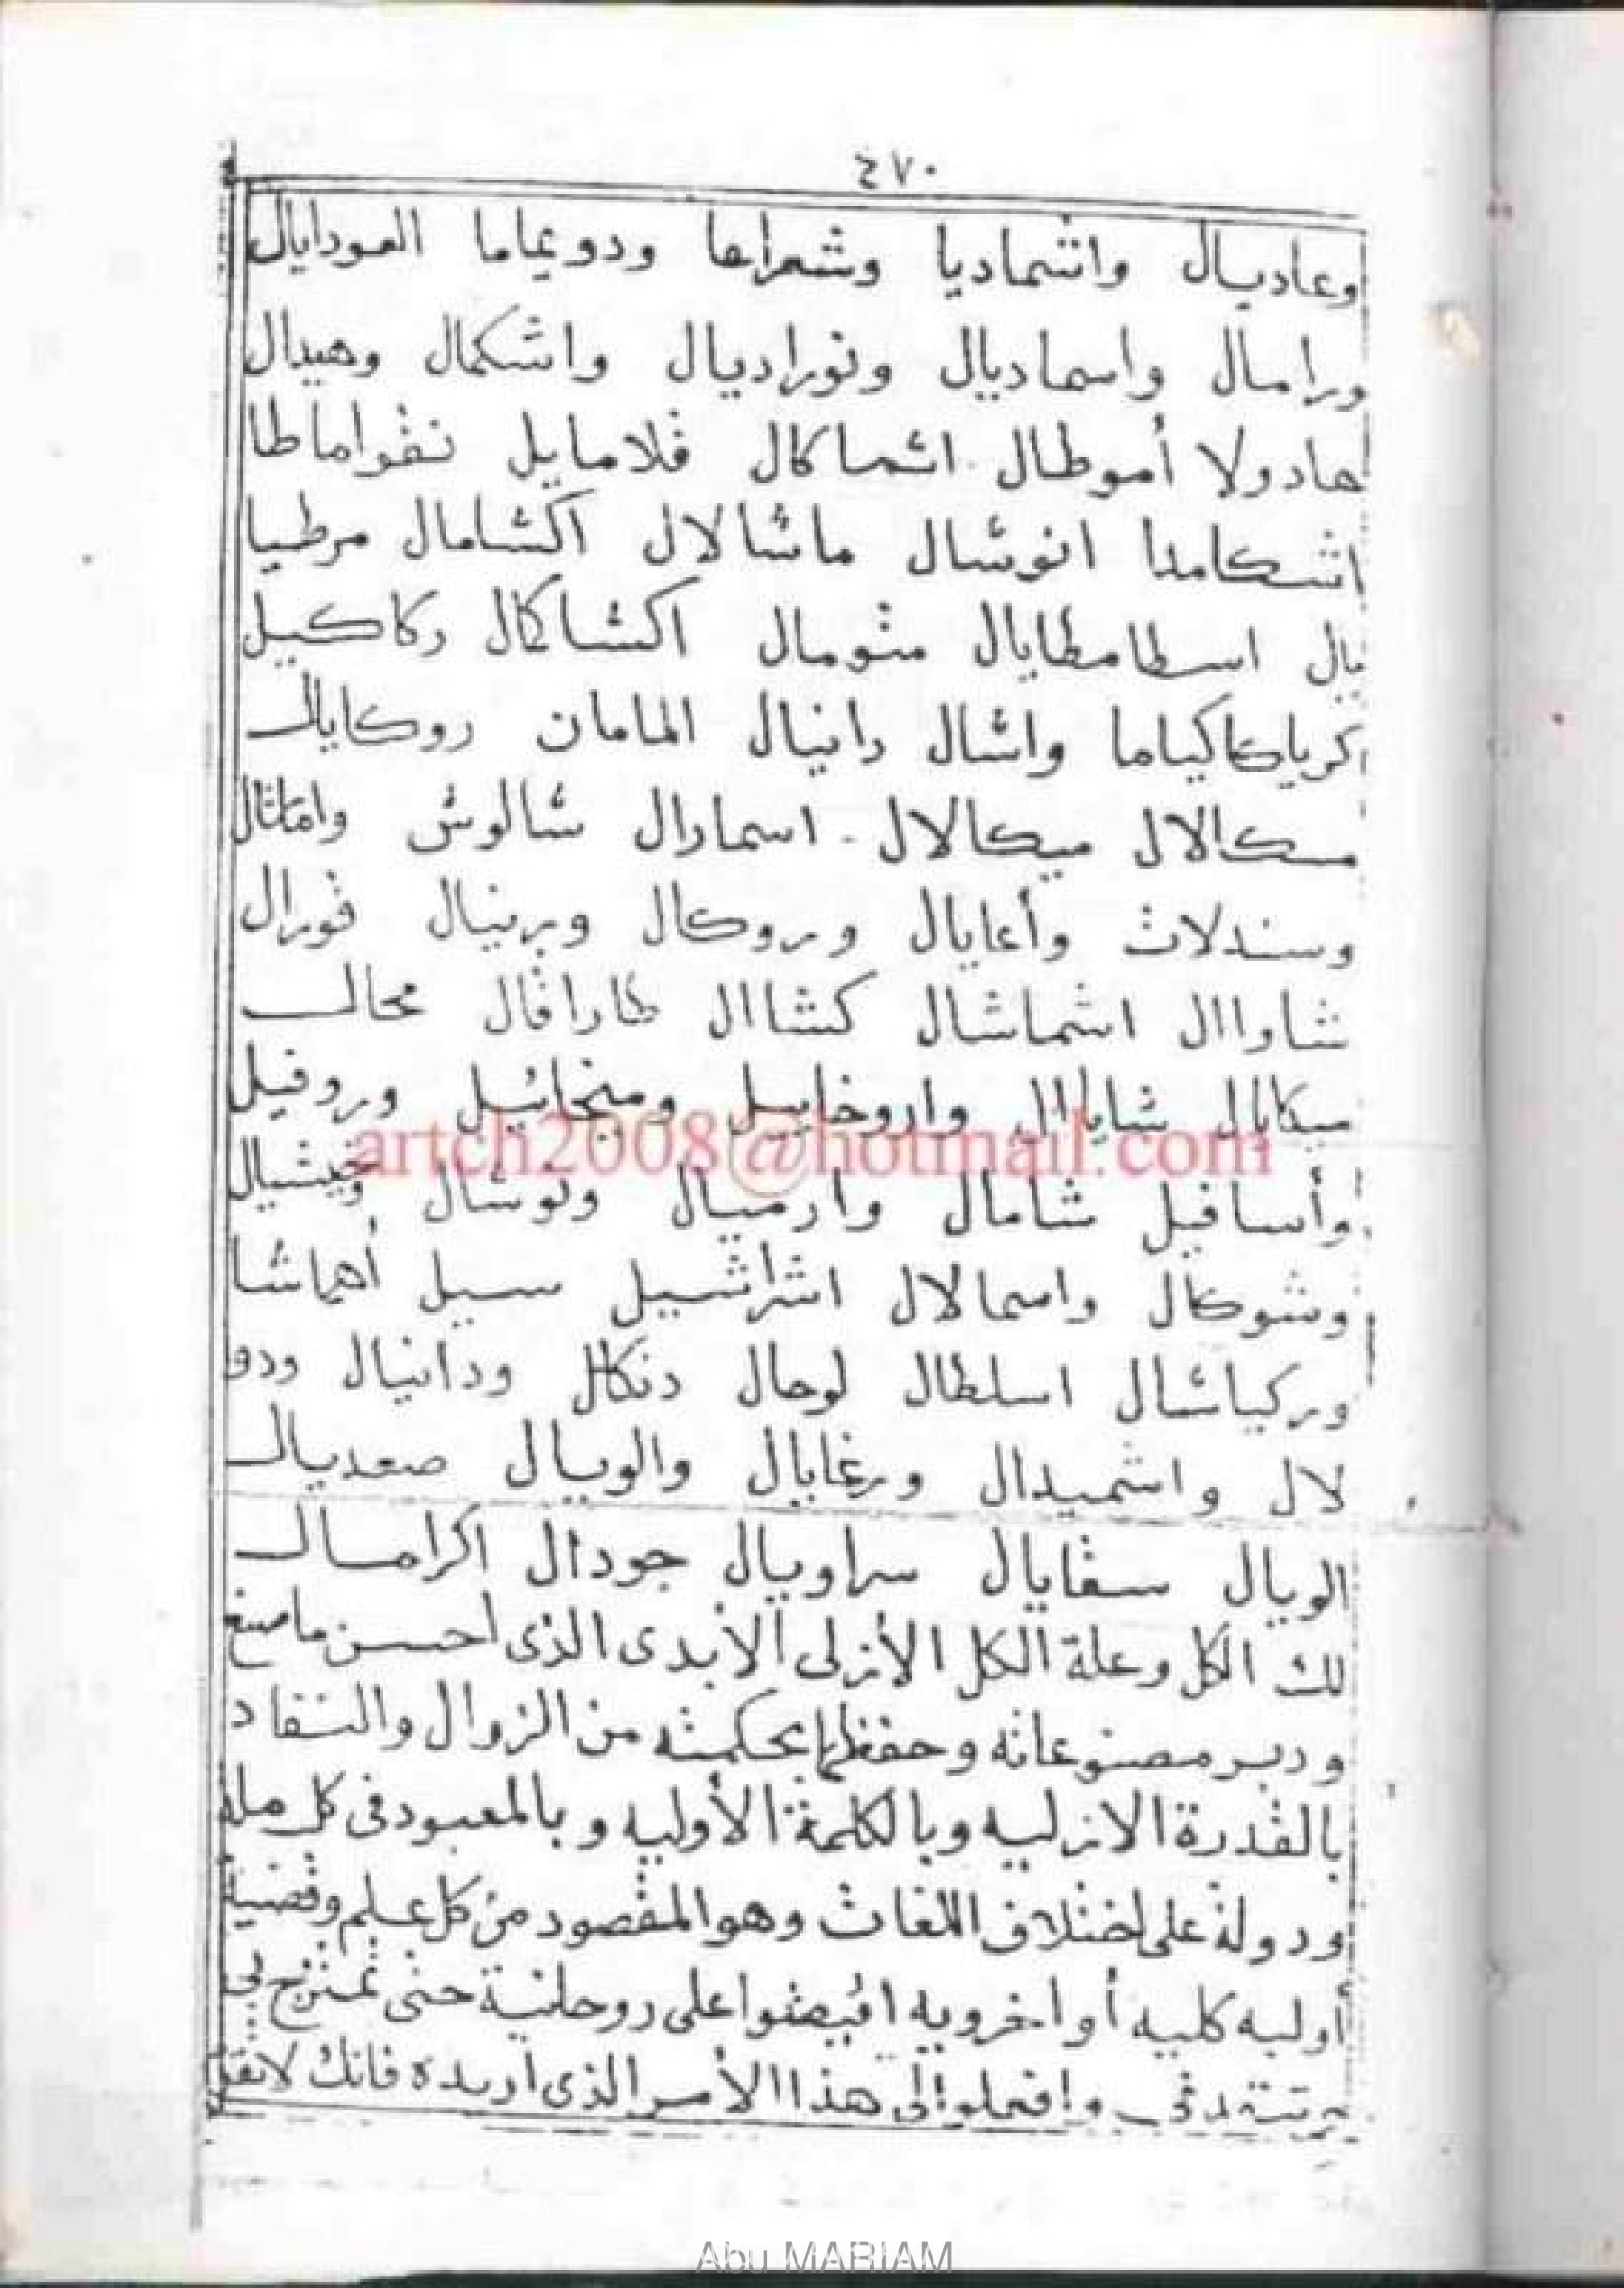 ٤٧٠
وعاديال واشماديا وشمراعا ودويماما العودايال
ورامال واسماديال ونوراديال واشكمال وهيدال
هادولا أموطال اشماكال فلامايل نقواماطا
اشكامدا انوشال ماشالال اكشامال مرطيا
يال اسطامطايال مثومال اكشاكال ركاكيل
كرياكاكياما واشال دانيال المامان روكايال
مسكالال ميكالال اسمارال شالوش واماثال
وسندلاث وأعايال وروكال وبرنيال فورال
شاواال اشماشال كشاال طارافال محال
ميكايال شاياال واروخاييل ومنجائيل وروفيل
وأسافيل شامال وارميال ونوشال وخيشيال
وشوكال واسمالال اشراشيل سيل أهماشا
وركياشال اسلطال لوحال دنكال ودانيال ودو
لال واشميدال ورغايال والويال صعديال
الويال سفايال سراويال جودال اكرامال
لك الكل وعلة الكل الأزلى الأبدى الذى احسن ماصنع
ودبر مصنوعاته وحفظها بحكمته من الزوال والنفاد
بالقدرة الازليه وبالكلمة الأوليه وبالمعبود فى كل ملة
ودولة على اختلاف اللغات وهو المقصود من كل علم وقضية
أوليه كليه أو اخرويه افيضوا على روحانية حتى تمتزج
وافعلوا لى هذا الأمر الذى اريده فانك
artch2008@hotmail.com
Abu MARIAM